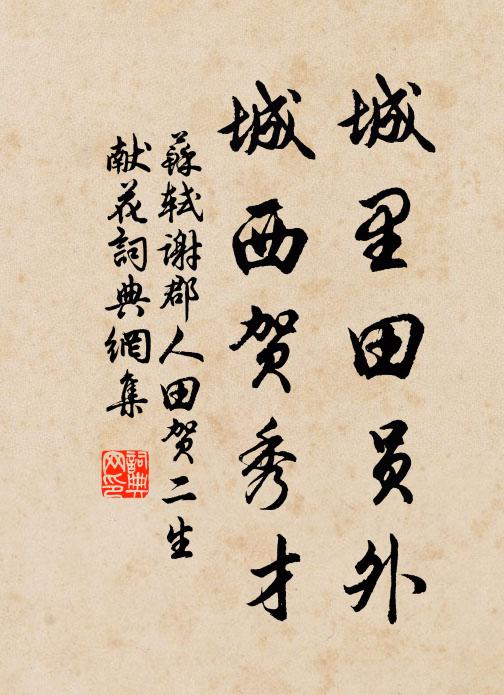 城里田员外
城西贺秀才
蘇軾谢郡人田贺二生
献花詞典網集
詞典网印